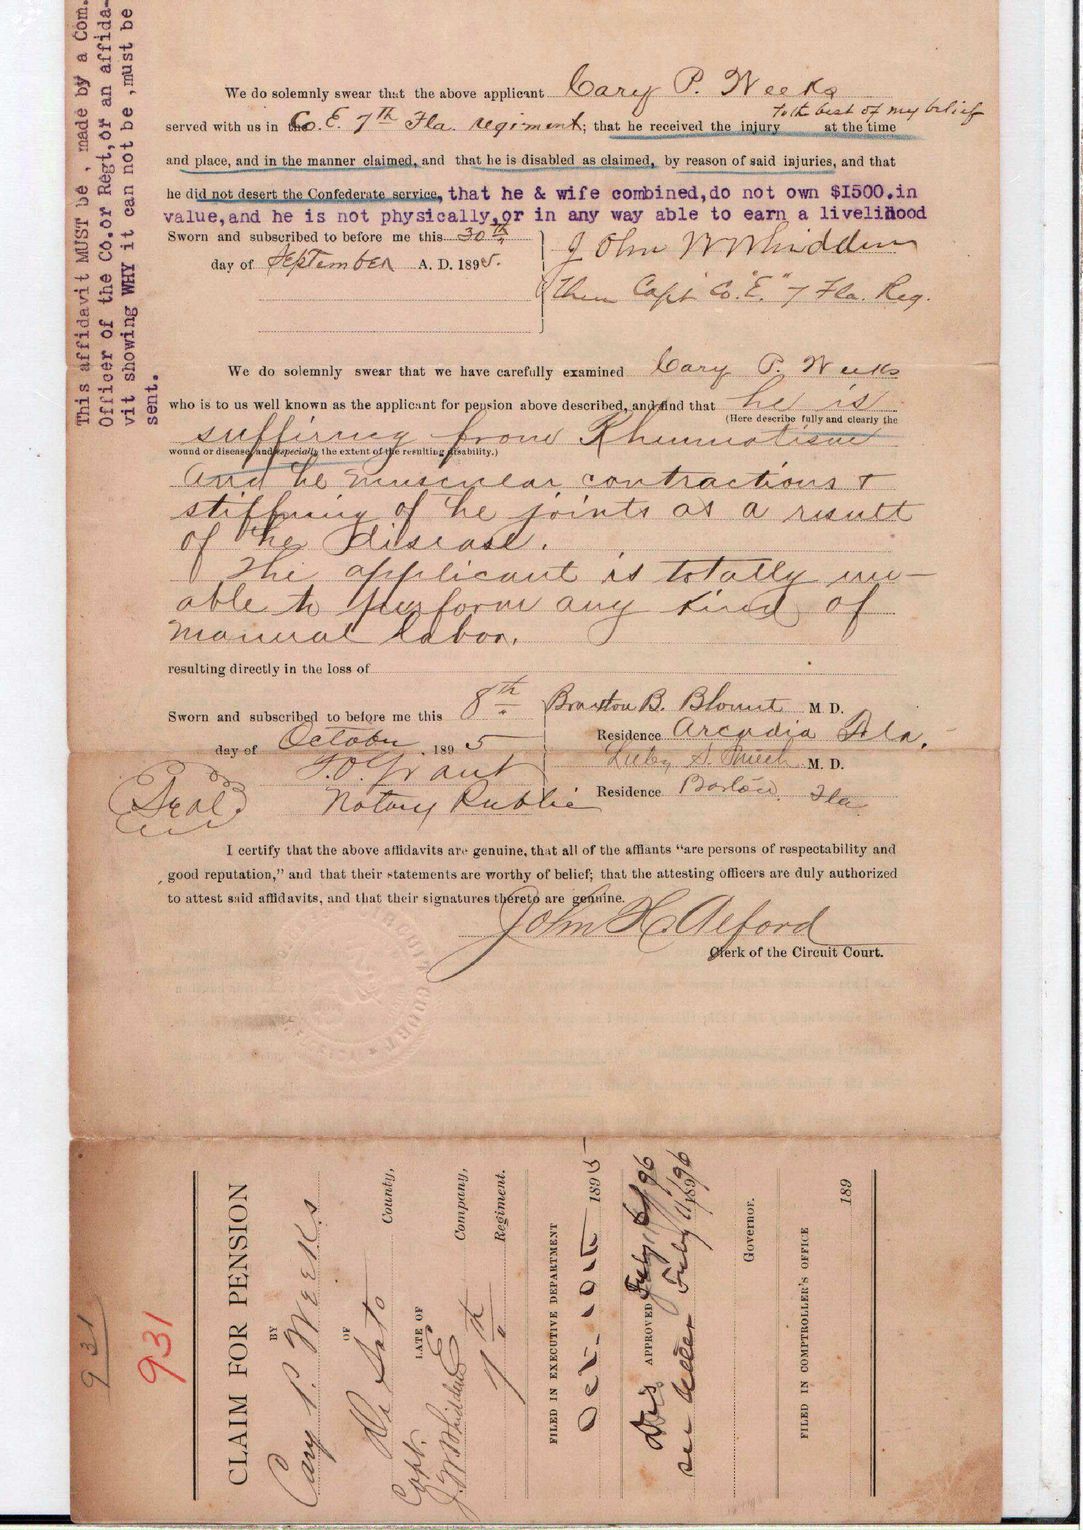 This affidavit MUST be , made by a Com.
Officer of the Co.or Regt,or an affida-
vit showing WHY it can not be ,must be
sent.
We do solemnly swear that the above applicant Cary P. Weeks
to the best of my belief
served with us in the Co. E. 7th Fla. regiment; that he received the injury at the time
and place, and in the manner claimed, and that he is disabled as claimed, by reason of said injuries, and that
he did not desert the Confederate service, that he & wife combined,do not own $1500.in
value,and he is not physically,or in any way able to earn a livelihood
Sworn and subscribed to before me this 30th
day of September A. D. 1895.
John W Whidden
then Capt Co. "E." 7 Fla. Reg.
We do solemnly swear that we have carefully examined Cary P. Weeks
who is to us well known as the applicant for pension above described, and find that he is
(Here describe fully and clearly the
suffering from Rheumatism
wound or disease, and especially the extent of the resulting disability.)
and the muscular contractions &
stiffning of the joints as a result
of the disease.
The applicant is totally un-
able to perform any kind of
manual labor.
resulting directly in the loss of
Sworn and subscribed to before me this 8th
day of October, 1895
T.O. Grant
Notary Public
Seal
Braxton B. Blount M D.
Residence Arcadia Fla.
M. D.
Residence Bartow, Fla
I certify that the above affidavits are genuine, that all of the affiants "are persons of respectability and
good reputation," and that their statements are worthy of belief; that the attesting officers are duly authorized
to attest said affidavits, and that their signatures thereto are genuine.
John H. Alford
Clerk of the Circuit Court.
CIRCUIT COURT
931
931
CLAIM FOR PENSION
BY
Cary P. Weeks
OF
De Soto County,
LATE OF
Capt. J. W Whidden E Company,
7th Regiment.
FILED IN EXECUTIVE DEPARTMENT
Oct. 10th 1895
Dis APPROVED July 11/96
see letter July 11/1896
Governor.
FILED IN COMPTROLLER'S OFFICE
189